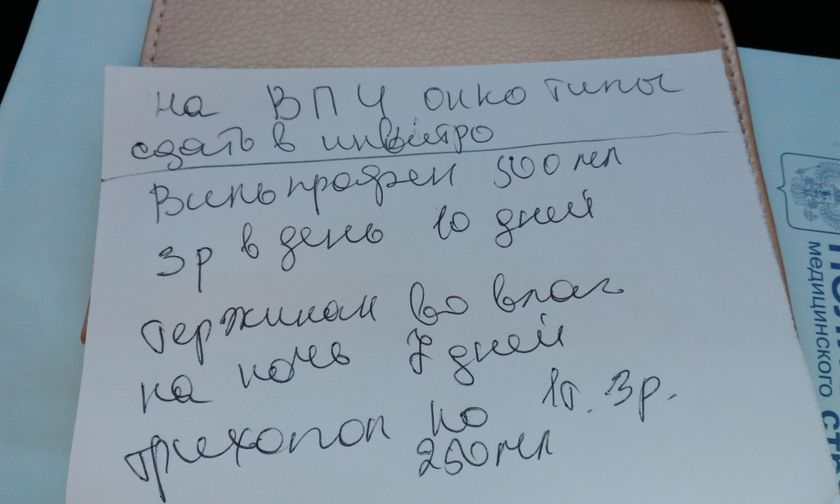 на ВПЧ онко типы
сдать в инвитро
Вильпрафен 500 мл
3р в день 10 дней
тержинан во влаг
на ночь 7 дней
трихопол по 1т. 3р.
250 мл
медицинского